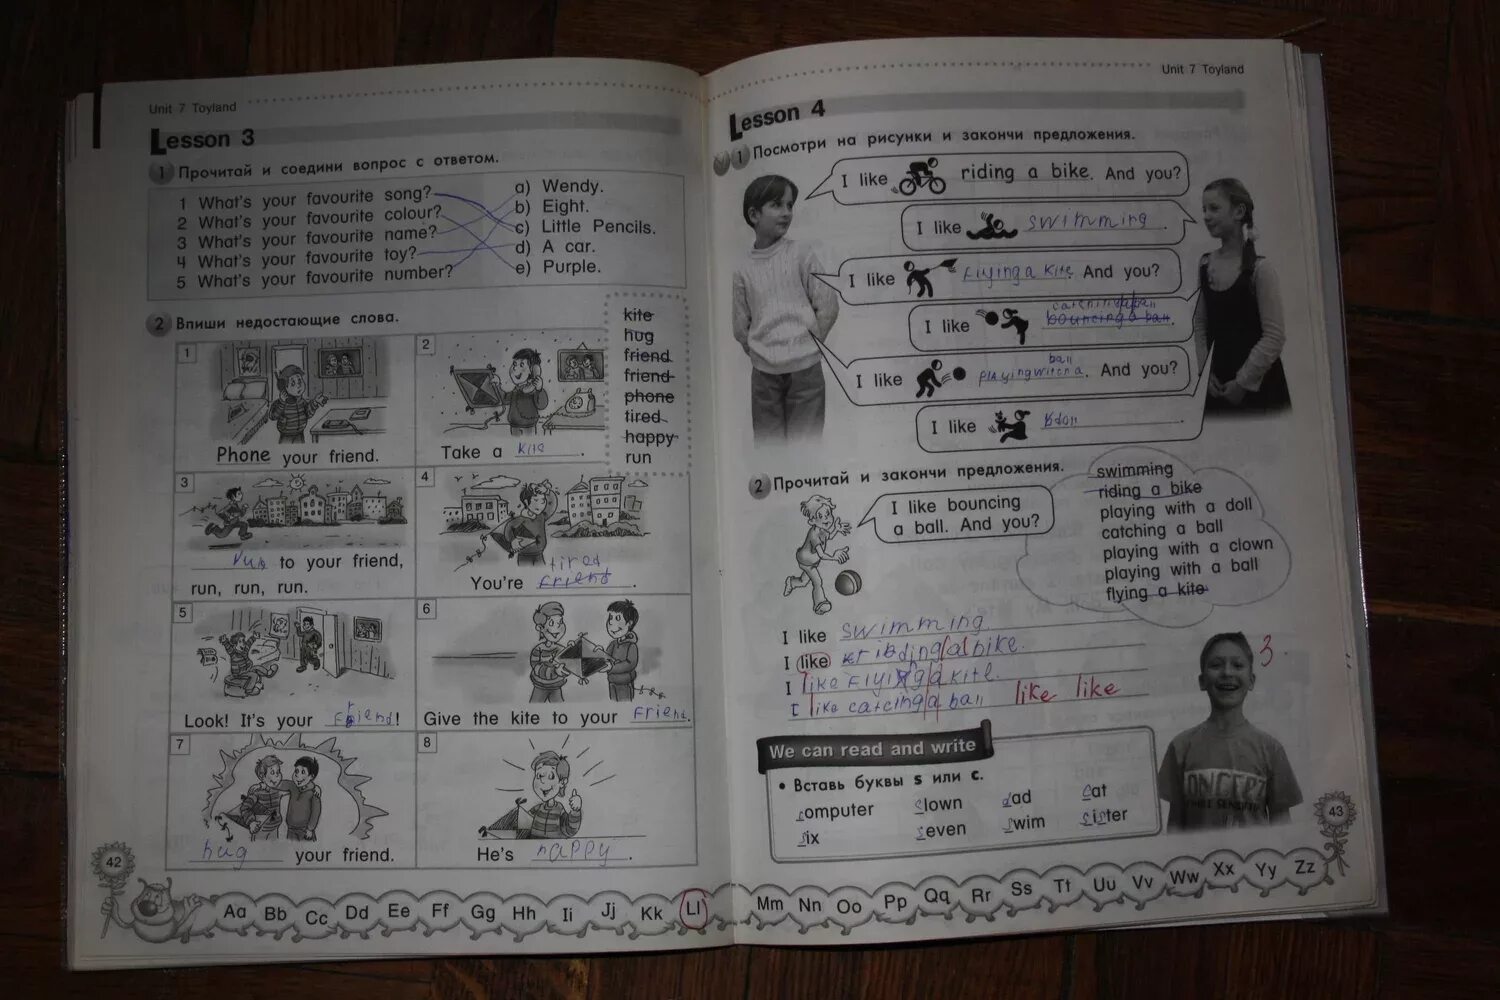 Unit 7 Toyland
Lesson 3
1 Прочитай и соедини вопрос с ответом.
1 What's your favourite song?
2 What's your favourite colour?
3 What's your favourite name?
4 What's your favourite toy?
5 What's your favourite number?
a) Wendy.
b) Eight.
c) Little Pencils.
d) A car.
e) Purple.
2 Впиши недостающие слова.
kite
hug
friend
friend
phone
tired
happy
run
1
Phone your friend.
2
Take a kite.
3
run to your friend,
run, run, run.
4
tired
You're friend.
5
Look! It's your friend!
6
Give the kite to your friend.
7
hug your friend.
8
He's happy.
42
Unit 7 Toyland
Lesson 4
1 Посмотри на рисунки и закончи предложения.
I like riding a bike. And you?
I like swimming.
I like flying a kite And you?
I like bouncing a ball.
ball
I like playing with a. And you?
I like
2 Прочитай и закончи предложения.
I like bouncing
a ball. And you?
swimming
riding a bike
playing with a doll
catching a ball
playing with a clown
playing with a ball
flying a kite
I like swimming
I like riding a bike.
I like flying a kite.
I like catcing a ball like like
3.
CONCEPT
We can read and write
• Вставь буквы s или c.
computer clown dad cat
six seven swim sister
43
Aa Bb Cc Dd Ee Ff Gg Hh Ii Jj Kk Ll Mm Nn Oo Pp Qq Rr Ss Tt Uu Vv Ww Xx Yy Zz